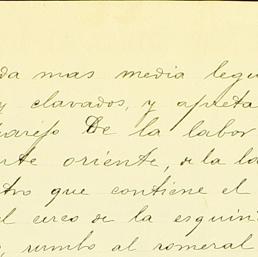 da mas media legu
y clavados, y apreta
De la labor
nte oriente, de la la
tro que contiene el
el cerco de la esquin
, rumbo al romeral